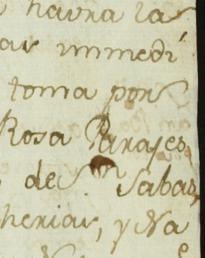 havra la
immedi
toma por
Rosa Parajes,
de Sn. Sabas,
herias, y Na